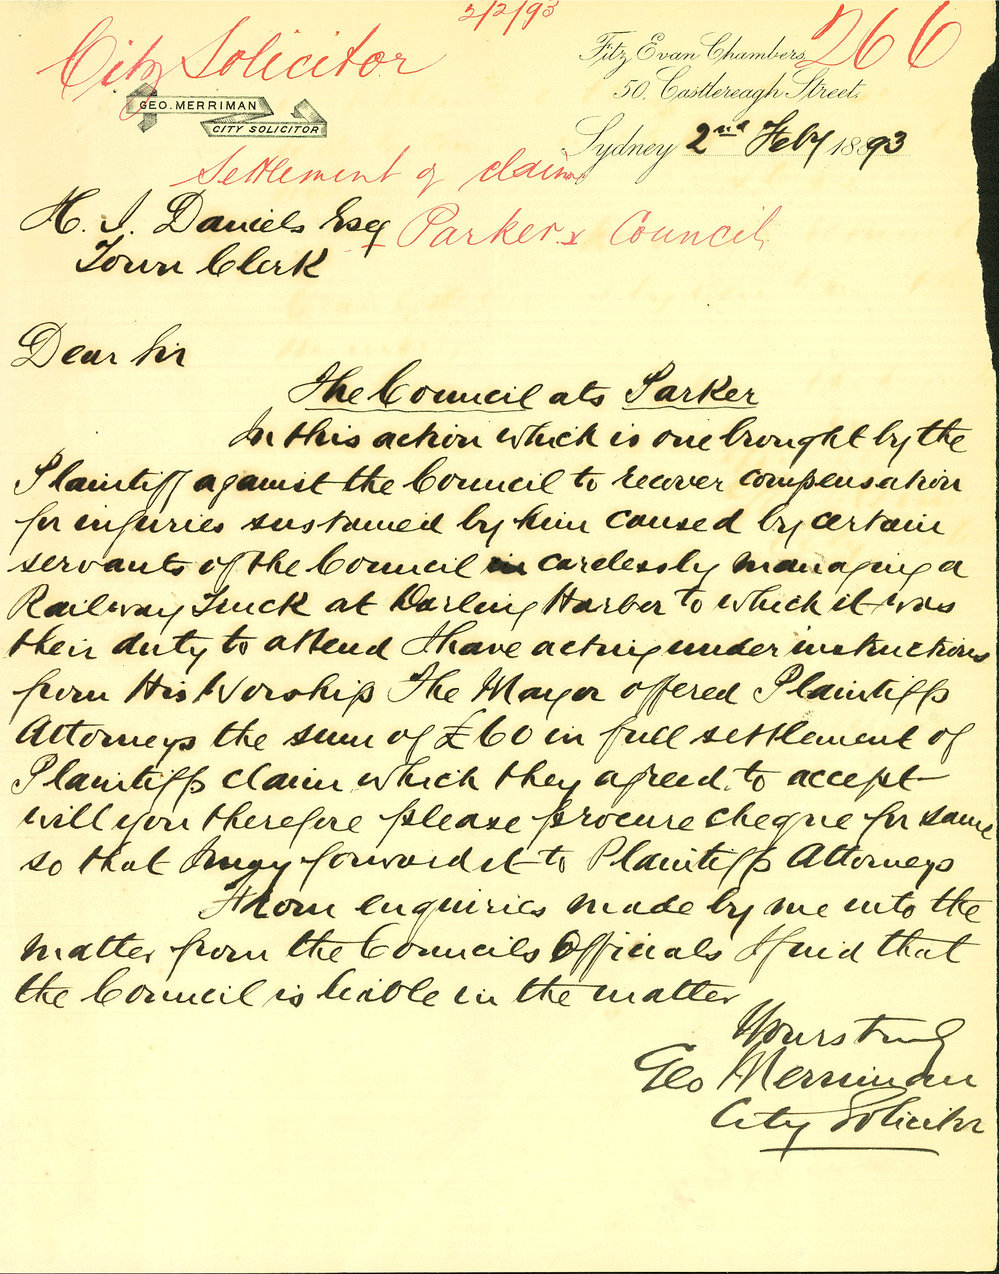 2/2/93
266
City Solicitor
Fitz Evan Chambers
50. Castlereagh Street.
GEO. MERRIMAN
CITY SOLICITOR
Sydney 2nd Feby 1893
Settlement of claim
H. J. Daniels Esq
Parker v Council
Town Clerk
Dear Sir
The Council ats Parker
In this action which is one brought by the
Plaintiff against the Council to recover compensation
for injuries sustained by him caused by certain
servants of the Council in carelessly managing a
Railway Truck at Darling Harbor to which it was
their duty to attend I have acting under instructions
from His Worship The Mayor offered Plaintiffs
Attorneys the sum of £60 in full settlement of
Plaintiffs claim which they agreed to accept
will you therefore please procure cheque for same
so that I may forward it to Plaintiffs Attorneys
From enquiries made by me into the
matter from the Councils Officials I find that
the Council is liable in the matter
Yours truly
Geo Merriman
City Solicitor